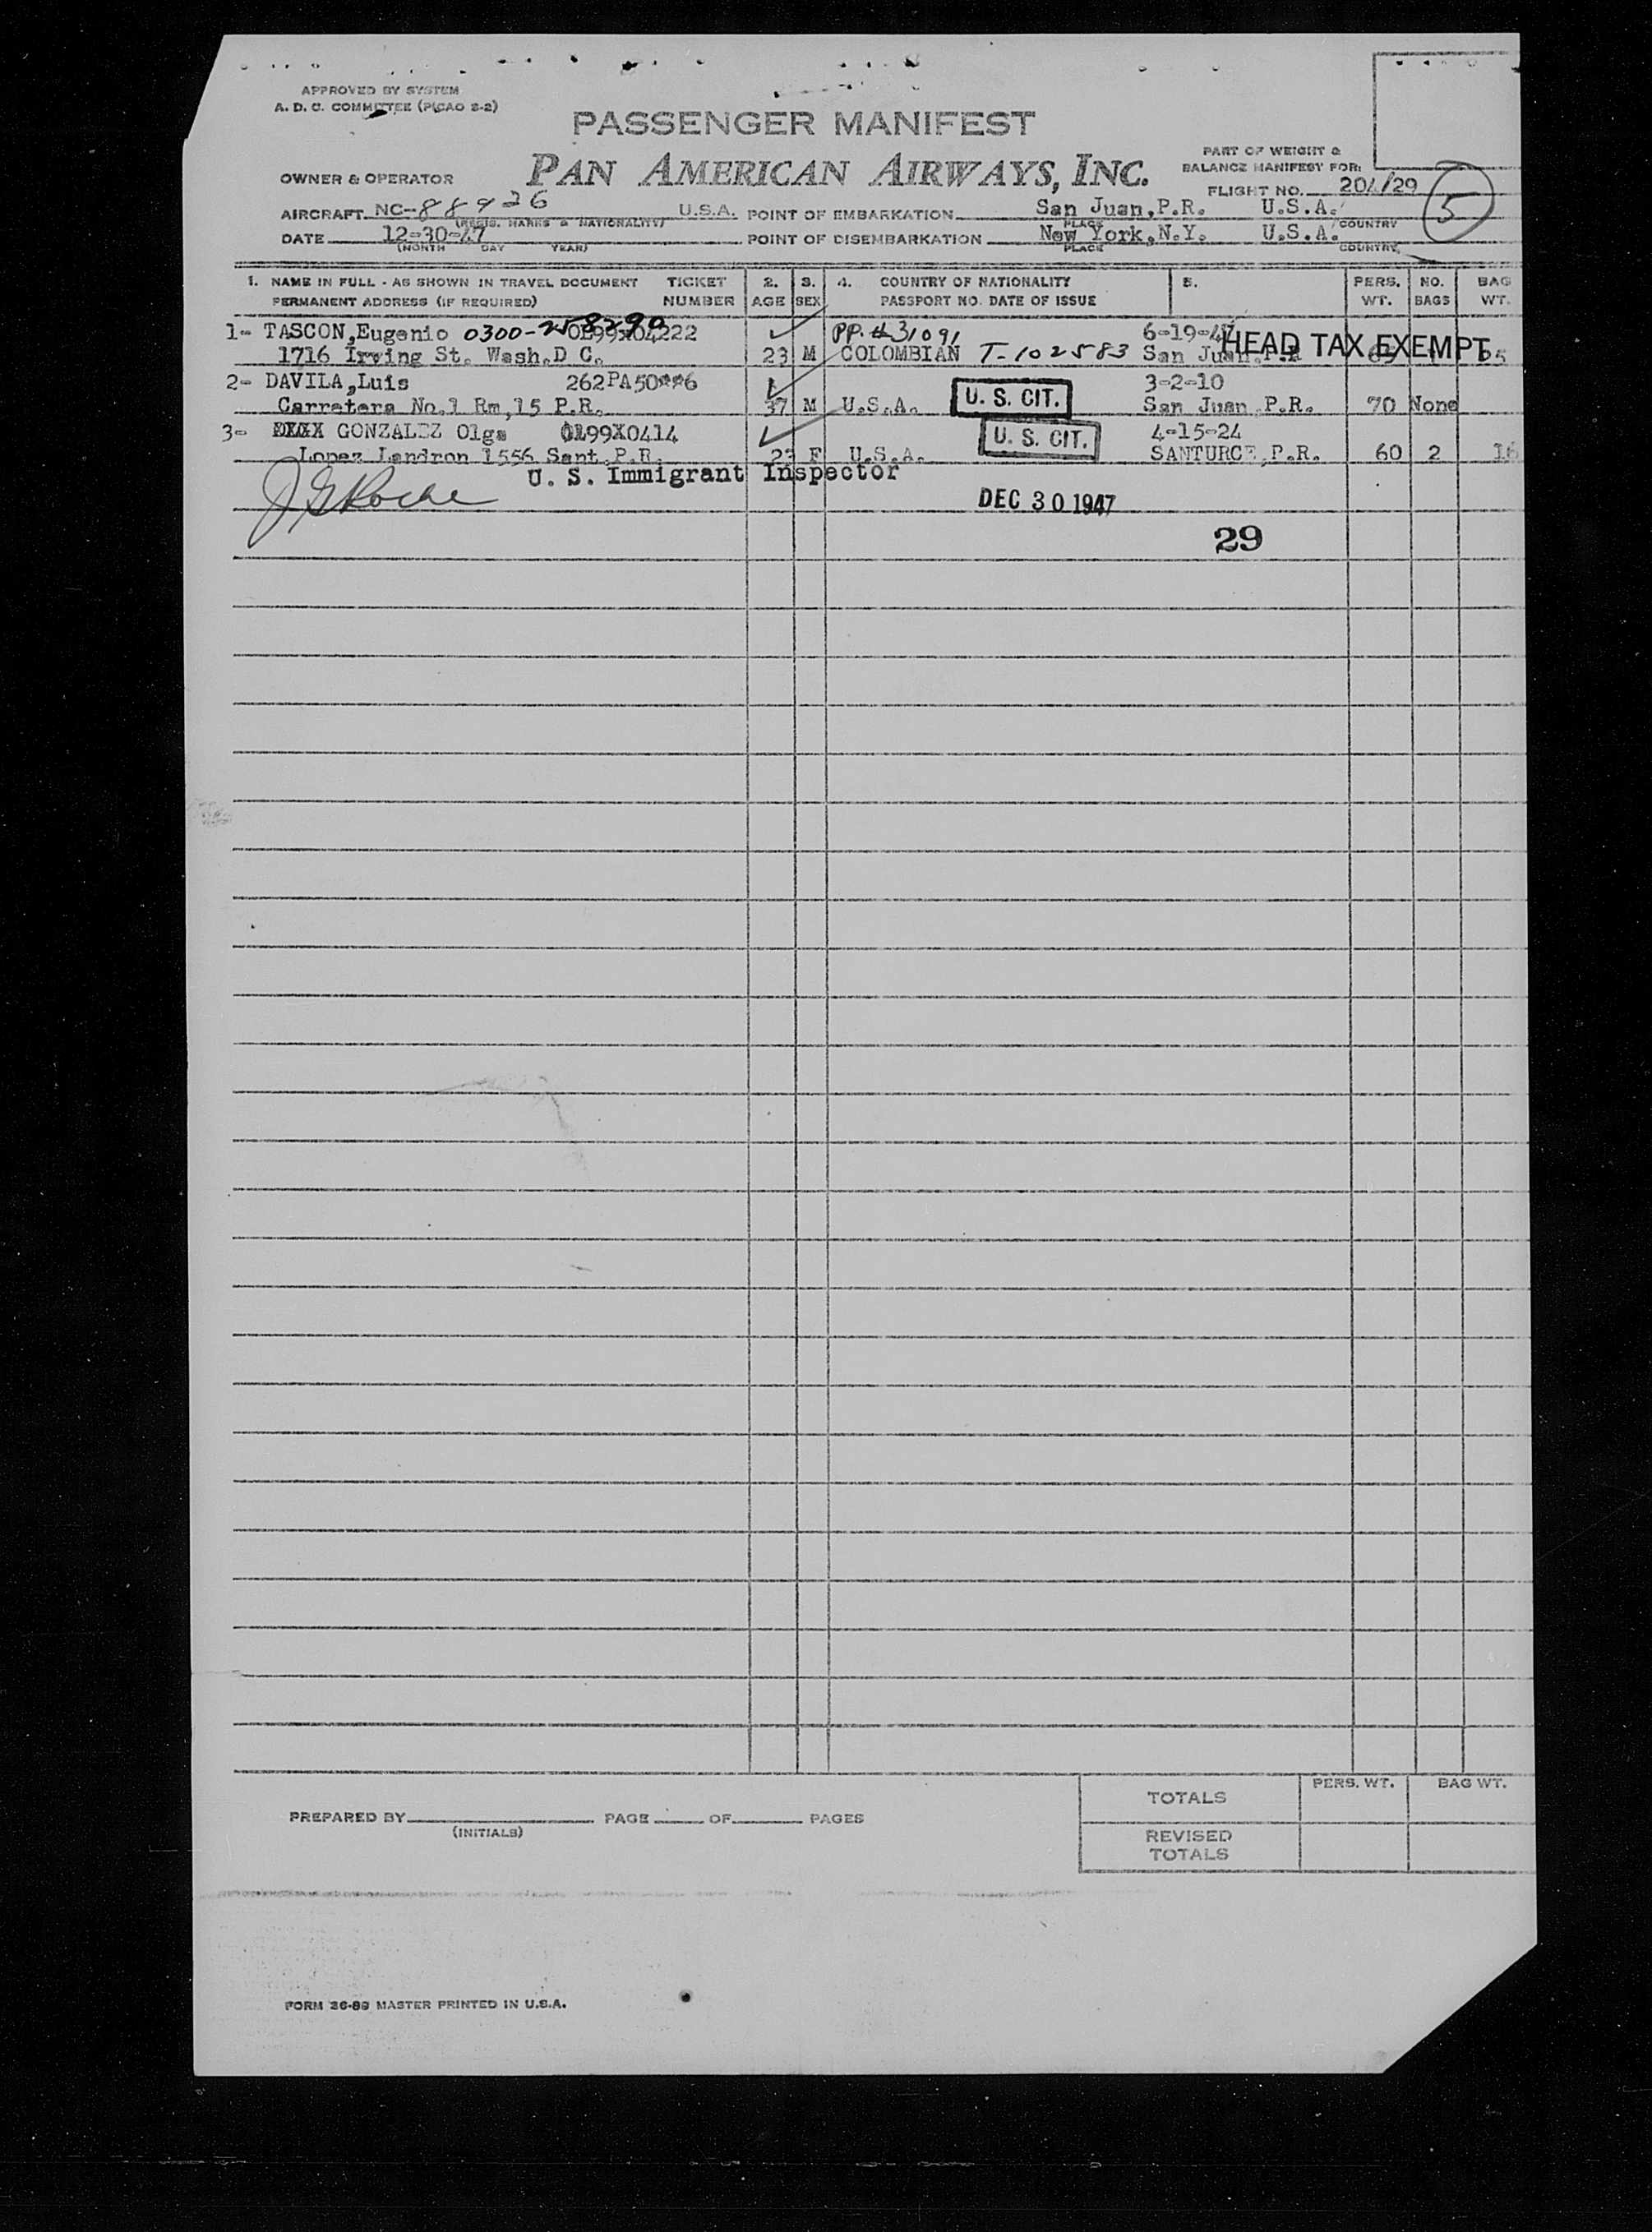 APPROVED BY SYSTEM
A. D. C. COMMITTEE (PICAO S-2)
PASSENGER MANIFEST
OWNER & OPERATOR PAN AMERICAN AIRWAYS, INC.
PART OF WEIGHT &
BALANCE MANIFEST FOR:
FLIGHT NO. 204/29
5
AIRCRAFT NC-88926 U.S.A. POINT OF EMBARKATION San Juan, P.R. U.S.A.
(REGIS. MARKS & NATIONALITY) PLACE COUNTRY
DATE 12-30-47 POINT OF DISEMBARKATION New York, N.Y. U.S.A.
(MONTH DAY YEAR) PLACE COUNTRY
1. NAME IN FULL - AS SHOWN IN TRAVEL DOCUMENT TICKET 2. 3. 4. COUNTRY OF NATIONALITY 5. PERS. NO. BAG
PERMANENT ADDRESS (IF REQUIRED) NUMBER AGE SEX PASSPORT NO. DATE OF ISSUE WT. BAGS WT.
1- TASCON,Eugenio 0300-258290 PP.#31091
HEAD TAX EXEMPT
1716 Irving St. Wash.D C. 23 M COLOMBIAN T-102583 San Juan,P.R
2- DAVILA,Luis 3-2-10
Carretera No.1 Rm,15 P.R. 37 M U.S.A. U. S. CIT. San Juan,P.R. 70 None
3- GONZALEZ Olga 0L99X0414 U. S. CIT. 4-15-24
Lopez Landron 1556 Sant.P.R. 23 F U.S.A. SANTURCE,P.R. 60 2 16
U. S. Immigrant Inspector
J G Roche
DEC 30 1947
29
PREPARED BY PAGE OF PAGES
(INITIALS)
TOTALS PERS. WT. BAG WT.
REVISED
TOTALS
FORM 36-89 MASTER PRINTED IN U.S.A.